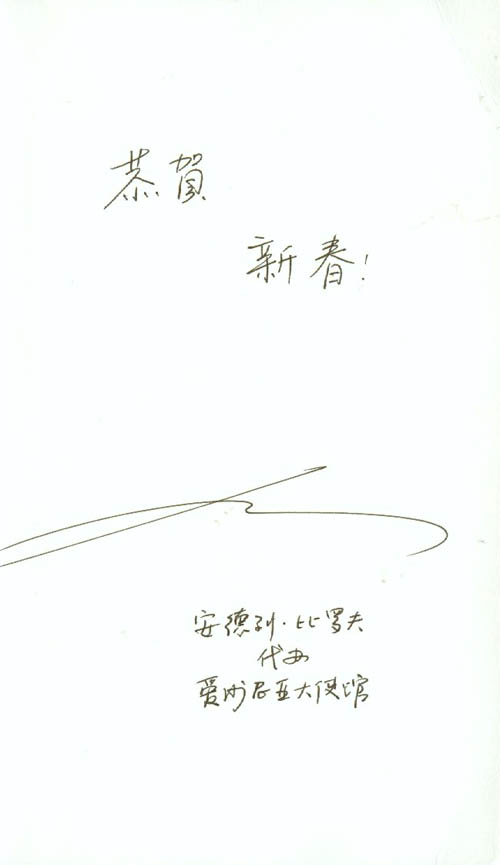 恭賀
新春!
安德列·比罗夫
代办
爱沙尼亚大使馆